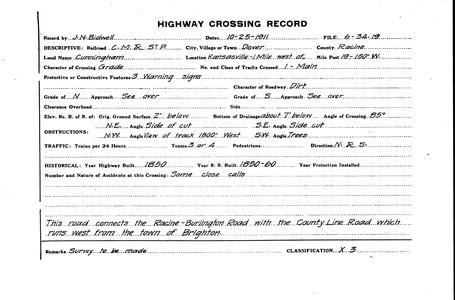 HIGHWAY CROSSING RECORD
Record by J.N. Bidwell Date: 10-25-1911 FILE. 6-34-19
DESCRIPTIVE: Railroad C.M. & St.P. City, Village or Town Dover County Racine
Local Name Cunningham Location Kansasville-1 Mile west of, Mile Post 19-150' W.
Character of Crossing Grade No. and Class of Tracks Crossed 1-Main
Protective or Constructive Features 3 Warning signs
Character of Roadway Dirt
Grade of N Approach See over Grade of S Approach See over
Clearance Overhead Side
Elev. Re. B. of R. of: Orig. Ground Surface 2' below Bottom of Drainage about 7' below Angle of Crossing 85°
OBSTRUCTIONS: N.E. Angle Side of cut S.E. Angle Side cut
N.W. Angle View of track 1800' West S.W. Angle Trees
TRAFFIC: Trains per 24 Hours Teams 3 or 4 Pedestrians Direction N. & S.
HISTORICAL: Year Highway Built 1850 Year R. R. Built 1850-60 Year Protection Installed
Number and Nature of Accidents at this Crossing: Some close calls
This road connects the Racine-Burlington Road with the County Line Road which
runs west from the town of Brighton.
Remarks Survey to be made CLASSIFICATION X 3